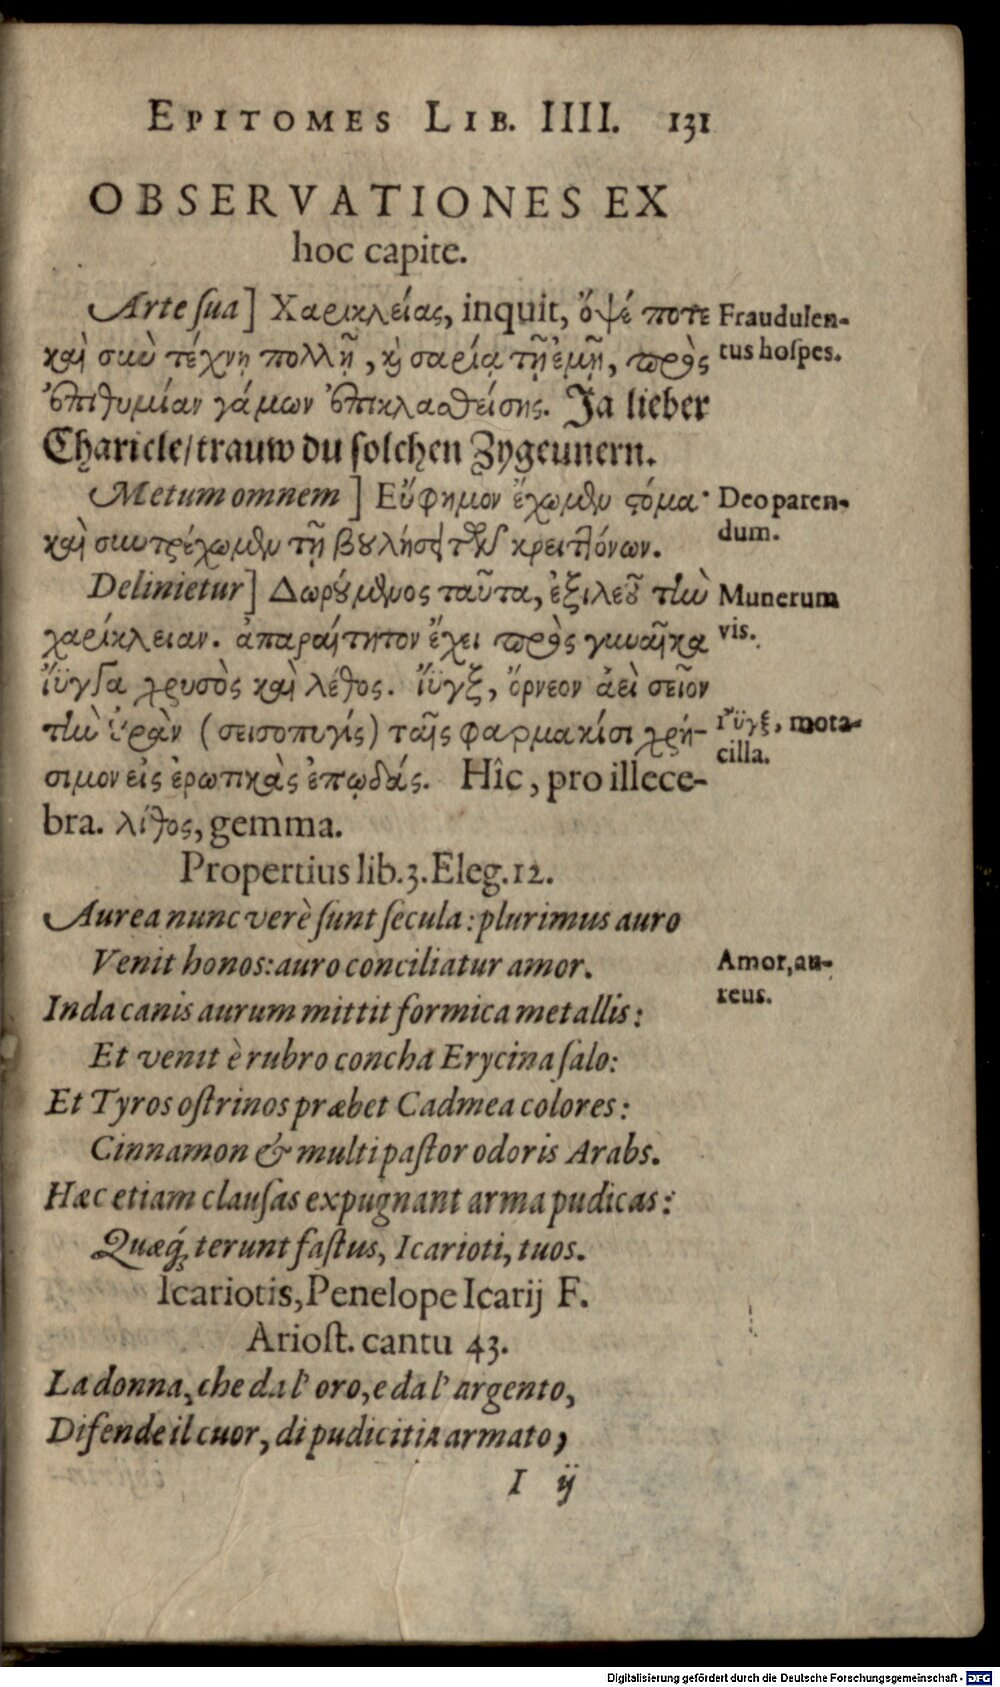 EPITOMES LIB. IIII. 131
OBSERVATIONES EX
hoc capite.
Arte sua] Χαρικλείας, inquit, ὀψέ ποτε
καὶ σὺν τέχνῃ πολλῇ, κὶ σαρίᾳ τῇ ἐμῇ, πρὸς
ἐπιθυμίαν γάμων ἐπικλασθείσης. Ja lieber
Charicle/trauw du solchen Zygeunern.
Metum omnem] Εὔφημον ἔχωμεν στόμα·
καὶ συντρέχωμεν τῇ βουλήσει τῶν κρειττόνων.
Delinietur] Δωρούμενος ταῦτα, ἐξιλεοῦ τὴν
χαρίκλειαν. ἀπαραίτητον ἔχει πρὸς γυναῖκα
ἴϋγγα χρυσὸς καὶ λίθος. ἴϋγξ, ὄρνεον ἀεὶ σεῖον
τὴν οὐρὰν (σεισοπυγίς) ταῖς φαρμακίσι χρή-
σιμον εἰς ἐρωτικὰς ἐπῳδάς. Hîc, pro illece-
bra. λίθος, gemma.
Propertius lib.3. Eleg.12.
Aurea nunc verè sunt secula: plurimus auro
Venit honos: auro conciliatur amor.
Inda canis aurum mittit formica metallis:
Et venit è rubro concha Erycina salo:
Et Tyros ostrinos præbet Cadmea colores:
Cinnamon & multi pastor odoris Arabs.
Hæc etiam clausas expugnant arma pudicas:
Quæq́; terunt fastus, Icarioti, tuos.
Icariotis, Penelope Icarij F.
Ariost. cantu 43.
La donna, che da l' oro, e da l' argento,
Difende il cuor, di pudicitia armato,
I ij
Fraudulen-
tus hospes.
Deo paren-
dum.
Munerum
vis.
ἴϋγξ, mota-
cilla.
Amor, au-
reus.
Digitalisierung gefördert durch die Deutsche Forschungsgemeinschaft - DFG